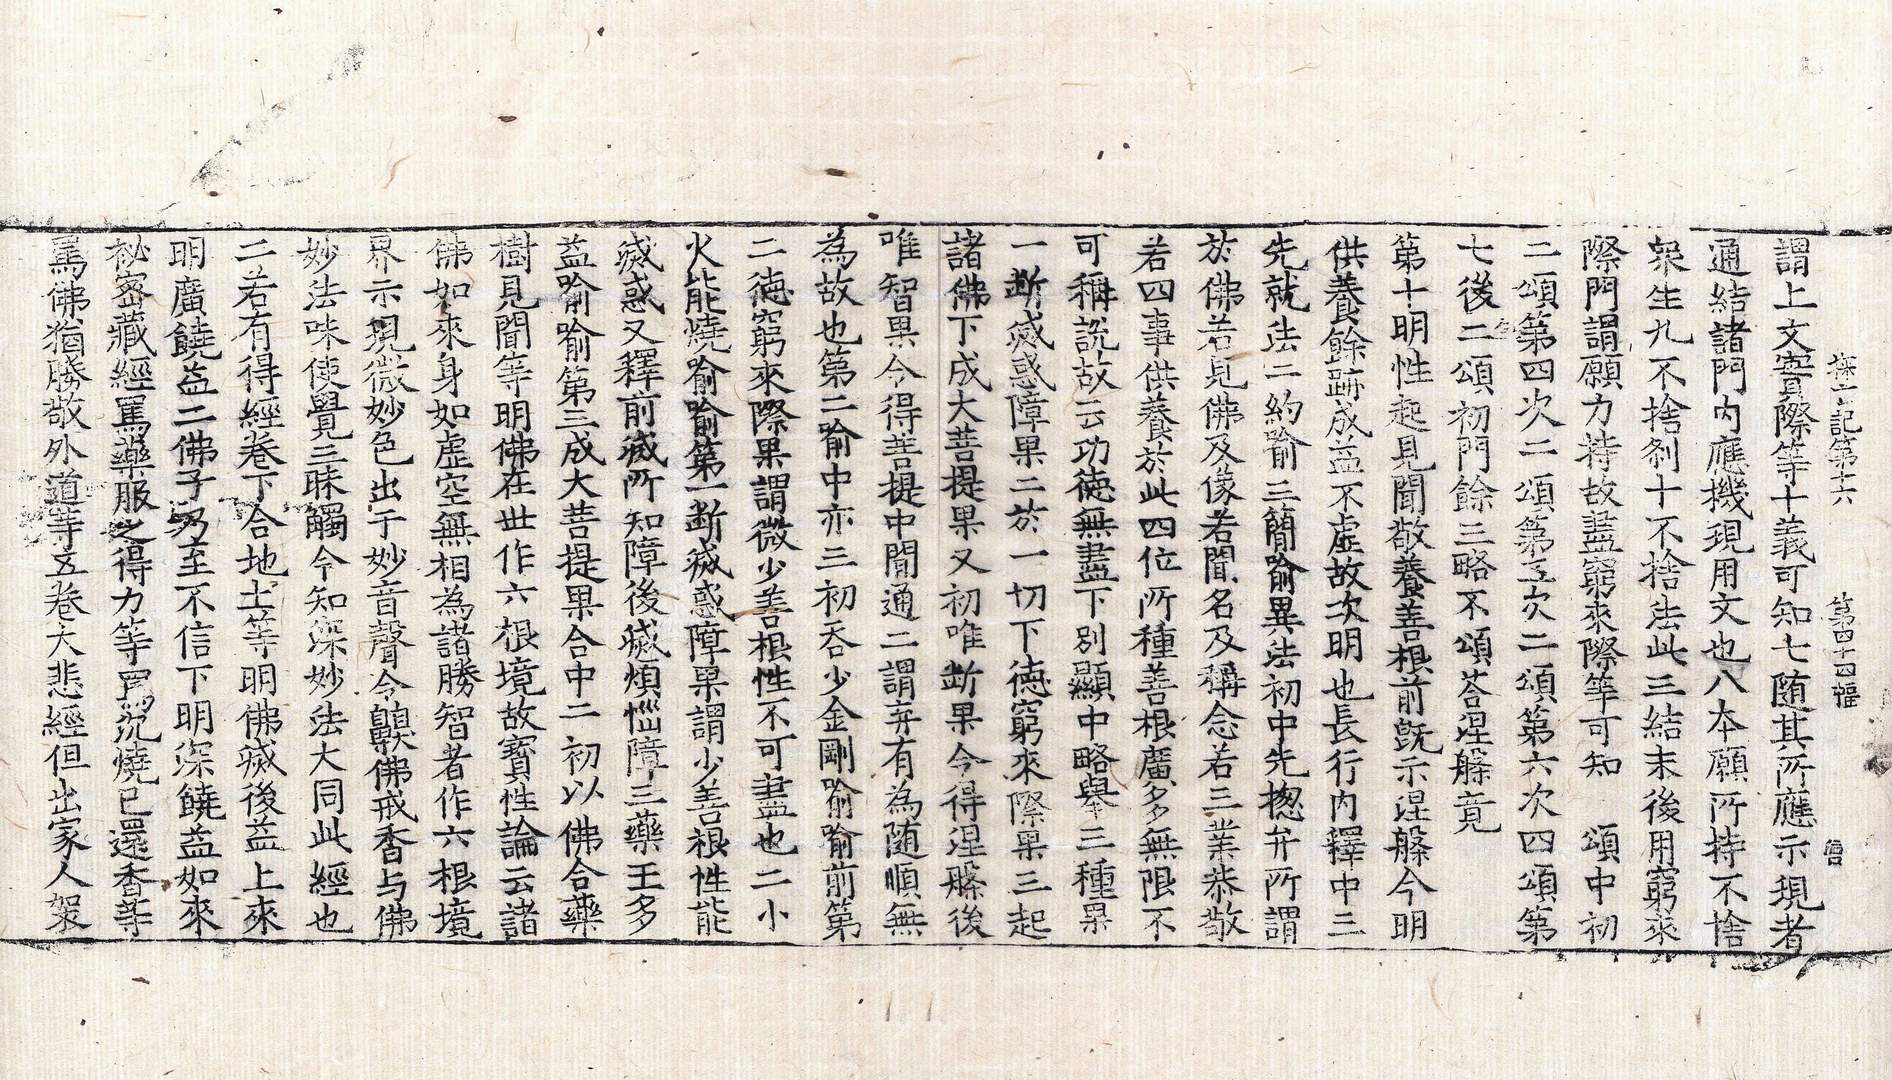 探玄記第十六　第四十四幅　僧
謂上文實際等十義可知七随其所應示現者
通結諸門內應機現用文也八本願所持不捨
衆生九不捨刹十不捨法此三結末後用窮來
際門謂願力持故盡窮來際等可知　頌中初
二頌第四次二頌第五次二頌第六次四頌第
七後二頌初門餘三略不頌荅涅槃竟
第十明性起見聞敬養善根前既示涅槃今明
供養餘跡成益不虛故次明也長行內釋中三
先就法二約喻三簡喻異法初中先揔弁所謂
於佛若見佛及像若聞名及稱念若三業恭敬
若四事供養於此四位所種善根廣多無限不
可稱說故云功徳無盡下别顯中略舉三種果
一断㓕惑障果二於一切下徳窮來際果三起
諸佛下成大菩提果又初唯断果今得涅槃後
唯智果今得菩提中間通二謂弃有為随順無
為故也第二喻中亦三初吞少金剛喻喻前第
二徳窮來際果謂微少善根性不可盡也二小
火能燒喻喻第一断㓕惑障果謂少善根性能
㓕惑又釋前㓕所知障後㓕煩惱障三藥王多
益喻喻第三成大菩提果合中二初以佛合藥
樹見聞等明佛在世作六根境故寶性論云諸
佛如來身如虛空無相為諸勝智者作六根境
界示現微妙色出于妙音聲令齅佛戒香与佛
妙法味使覺三昧觸令知深妙法大同此經也
二若有得經卷下合地土等明佛㓕後益上來
明廣饒益二佛子乃至不信下明深饒益如來
祕密藏經罵藥服之得力等罵沉燒已還香等
罵佛猶勝敬外道等五卷大悲經但出家人袈